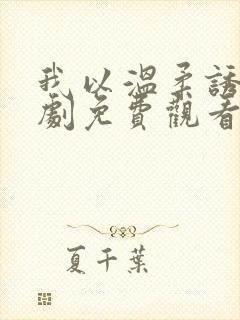 我以溫柔誘
劇免費觀看
夏千葉